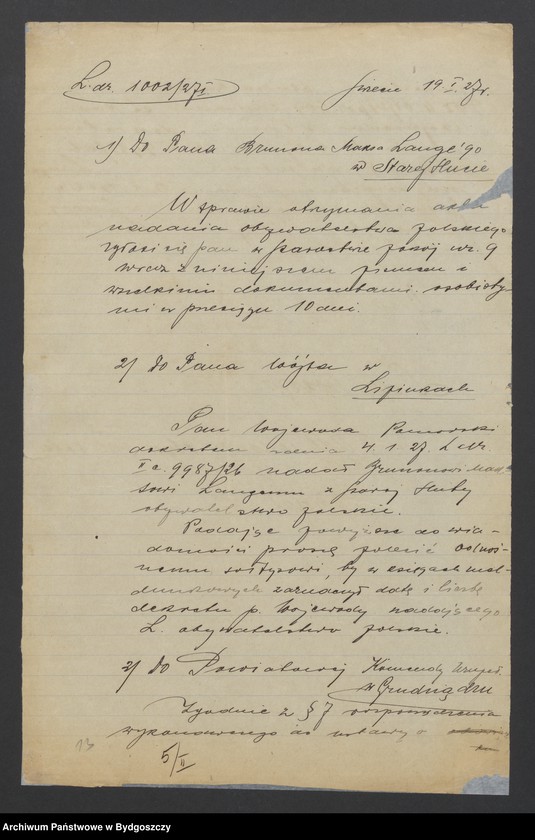 L. dz. 1002/27 I
Świecie 19.I.27 r.
1) Do Pana Brunona Maksa Lange'go
w Starej Hucie
W sprawie otrzymania aktu
nadania obywatelstwa polskiego
zgłosi się pan w starostwie pokój nr. 9
wraz z niniejszem pismem i
wszelkimi dokumentami osobisty-
mi w przeciągu 10 dni.
2) Do Pana Wójta w
Lipinkach
Pan Wojewoda Pomorski
dekretem z dnia 4.1.27. L. dz.
II a. 9987/26 nadał Brunonowi Mak-
sowi Langemu z Starej Huty
obywatelstwo polskie.
Podając powyższe do wia-
domości proszę polecić odnoś-
nemu sołtysowi, by w księgach mel-
dunkowych zaznaczył datę i liczbę
dekretu p. Wojewody nadającego
L. obywatelstwo polskie.
3) Do Powiatowej Komendy Uzupeł.
w Grudziądzu
Zgodnie z § 7 rozporządzenia
wykonawczego do ustawy o
13
5/II
Archiwum Państwowe w Bydgoszczy